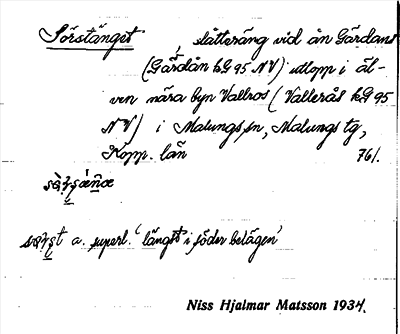 Sörstänget, slåtteräng vid ån Gärdans
(Gärdån kG 95 NV) utlopp i äl-
ven nära byn Vallros (Vallerås kG 95
NV) i Malungs sn, Malungs tg,
Kopp. län 76/.
a. superl. 'längst i söder belägen'
Niss Hjalmar Matsson 1934.